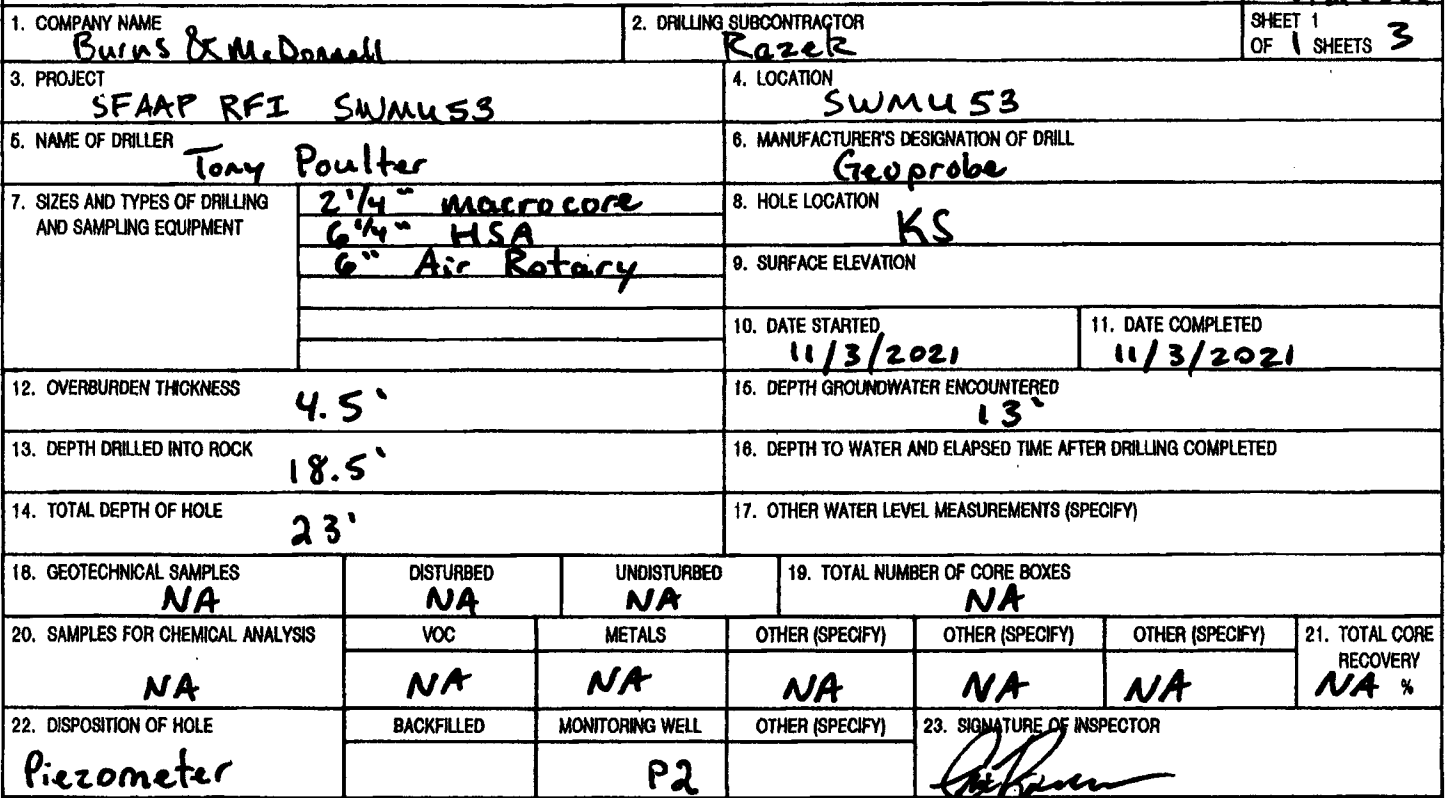 1. COMPANY NAME
Burns & McDonnell
2. DRILLING SUBCONTRACTOR
Razek
SHEET 1
OF 1 SHEETS 3
3. PROJECT
SFAAP RFI SWMU53
4. LOCATION
SWMU 53
5. NAME OF DRILLER
Tony Poulter
6. MANUFACTURER'S DESIGNATION OF DRILL
Geoprobe
7. SIZES AND TYPES OF DRILLING
AND SAMPLING EQUIPMENT
2 1/4" macrocore
6 1/4" HSA
6" Air Rotary
8. HOLE LOCATION
KS
9. SURFACE ELEVATION
10. DATE STARTED
11/3/2021
11. DATE COMPLETED
11/3/2021
12. OVERBURDEN THICKNESS
4.5'
15. DEPTH GROUNDWATER ENCOUNTERED
13'
13. DEPTH DRILLED INTO ROCK
18.5'
16. DEPTH TO WATER AND ELAPSED TIME AFTER DRILLING COMPLETED
14. TOTAL DEPTH OF HOLE
23'
17. OTHER WATER LEVEL MEASUREMENTS (SPECIFY)
18. GEOTECHNICAL SAMPLES
NA
DISTURBED
NA
UNDISTURBED
NA
19. TOTAL NUMBER OF CORE BOXES
NA
20. SAMPLES FOR CHEMICAL ANALYSIS
NA
VOC
NA
METALS
NA
OTHER (SPECIFY)
NA
OTHER (SPECIFY)
NA
OTHER (SPECIFY)
NA
21. TOTAL CORE
RECOVERY
NA %
22. DISPOSITION OF HOLE
Piezometer
BACKFILLED
MONITORING WELL
P2
OTHER (SPECIFY)
23. SIGNATURE OF INSPECTOR